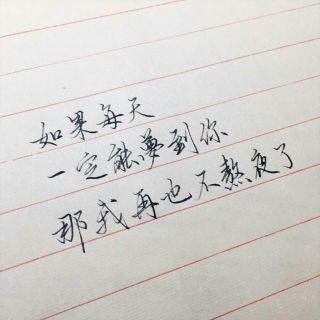 如果每天
一定能夢到你
那我再也不熬夜了